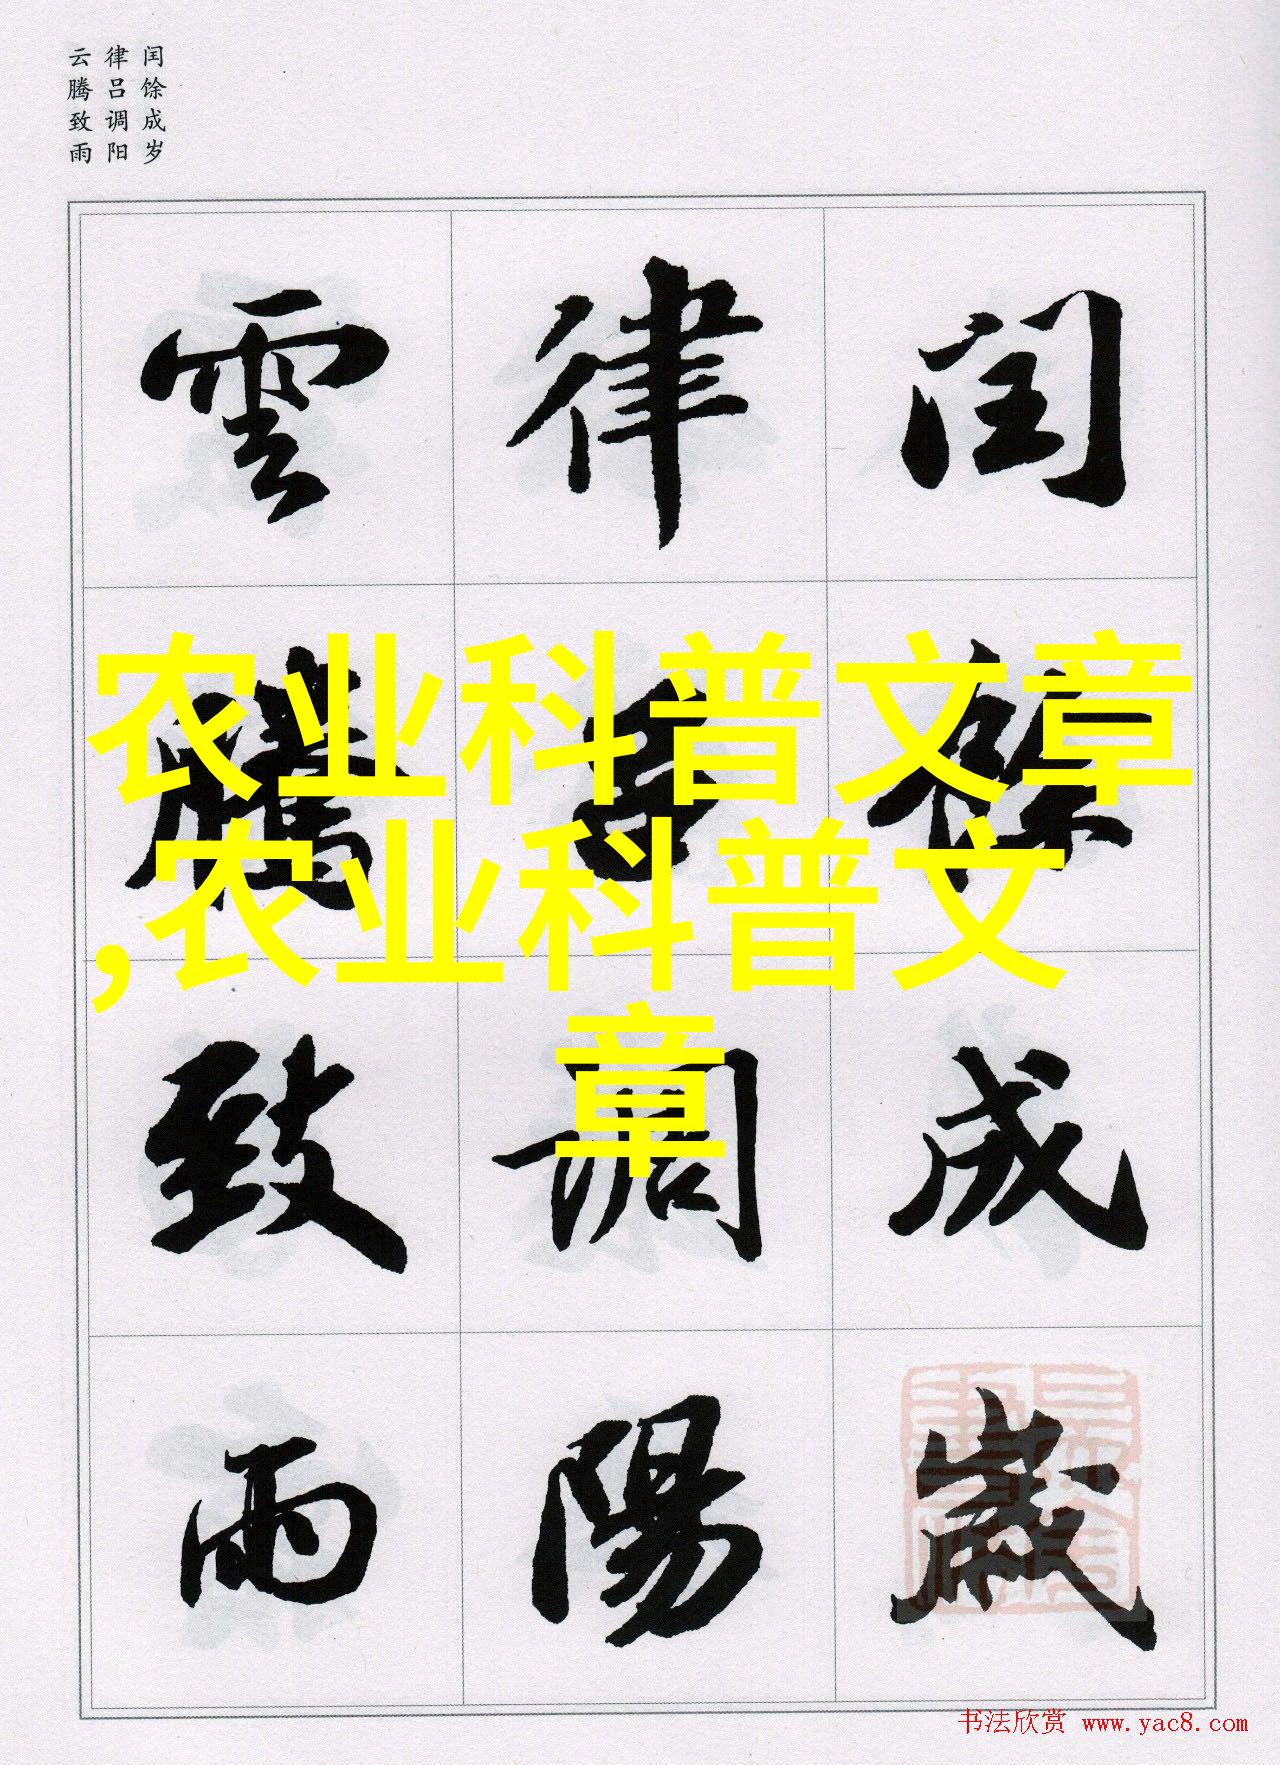 闰馀成岁
律吕调阳
云腾致雨
闰馀成歲
律吕調陽
雲騰致雨
农业科普文章
,农业科普文
章
书法欣赏 www.yac8.com